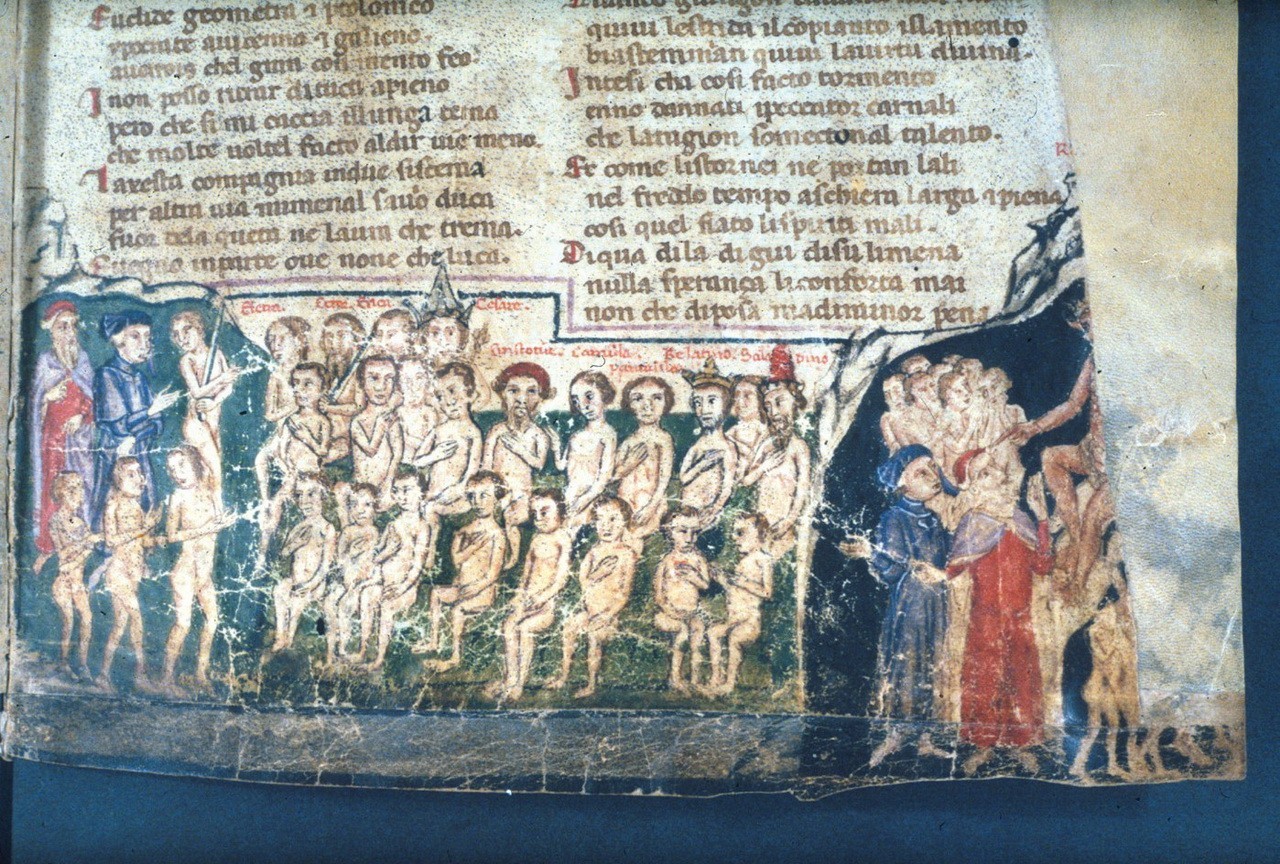 Euclide geometra ⁊ ptolomeo
ypocrate auicenna ⁊ galieno
auerois chel gran
Io non posso ritrar di tucti apieno
pero che si mi caccia illunga tema
che molte uolte facto aldir uie meno.
La xesta compagnia indue si scema
per altra uia mi mena l sauio duca
fuor dela queta ne laura che trema.
Et uegno inparte oue none che luca.
quiui le strida il conpianto il lamento
biastemman quiui la uirtu diuina.
Intesi cha cosi facto tormento
enno dannati i peccator carnali
che la ragion somecton al talento.
Et come li stornei ne portan lali
nel freddo tempo aschiera larga ⁊ piena
cosi quel fiato li spiriti mali.
Di qua di la di giu di su li mena
nulla speranza li conforta mai
non che di posa ma di minor pena
Ector. Enea. Cesare.
Camilla. Re latino. Sala dino